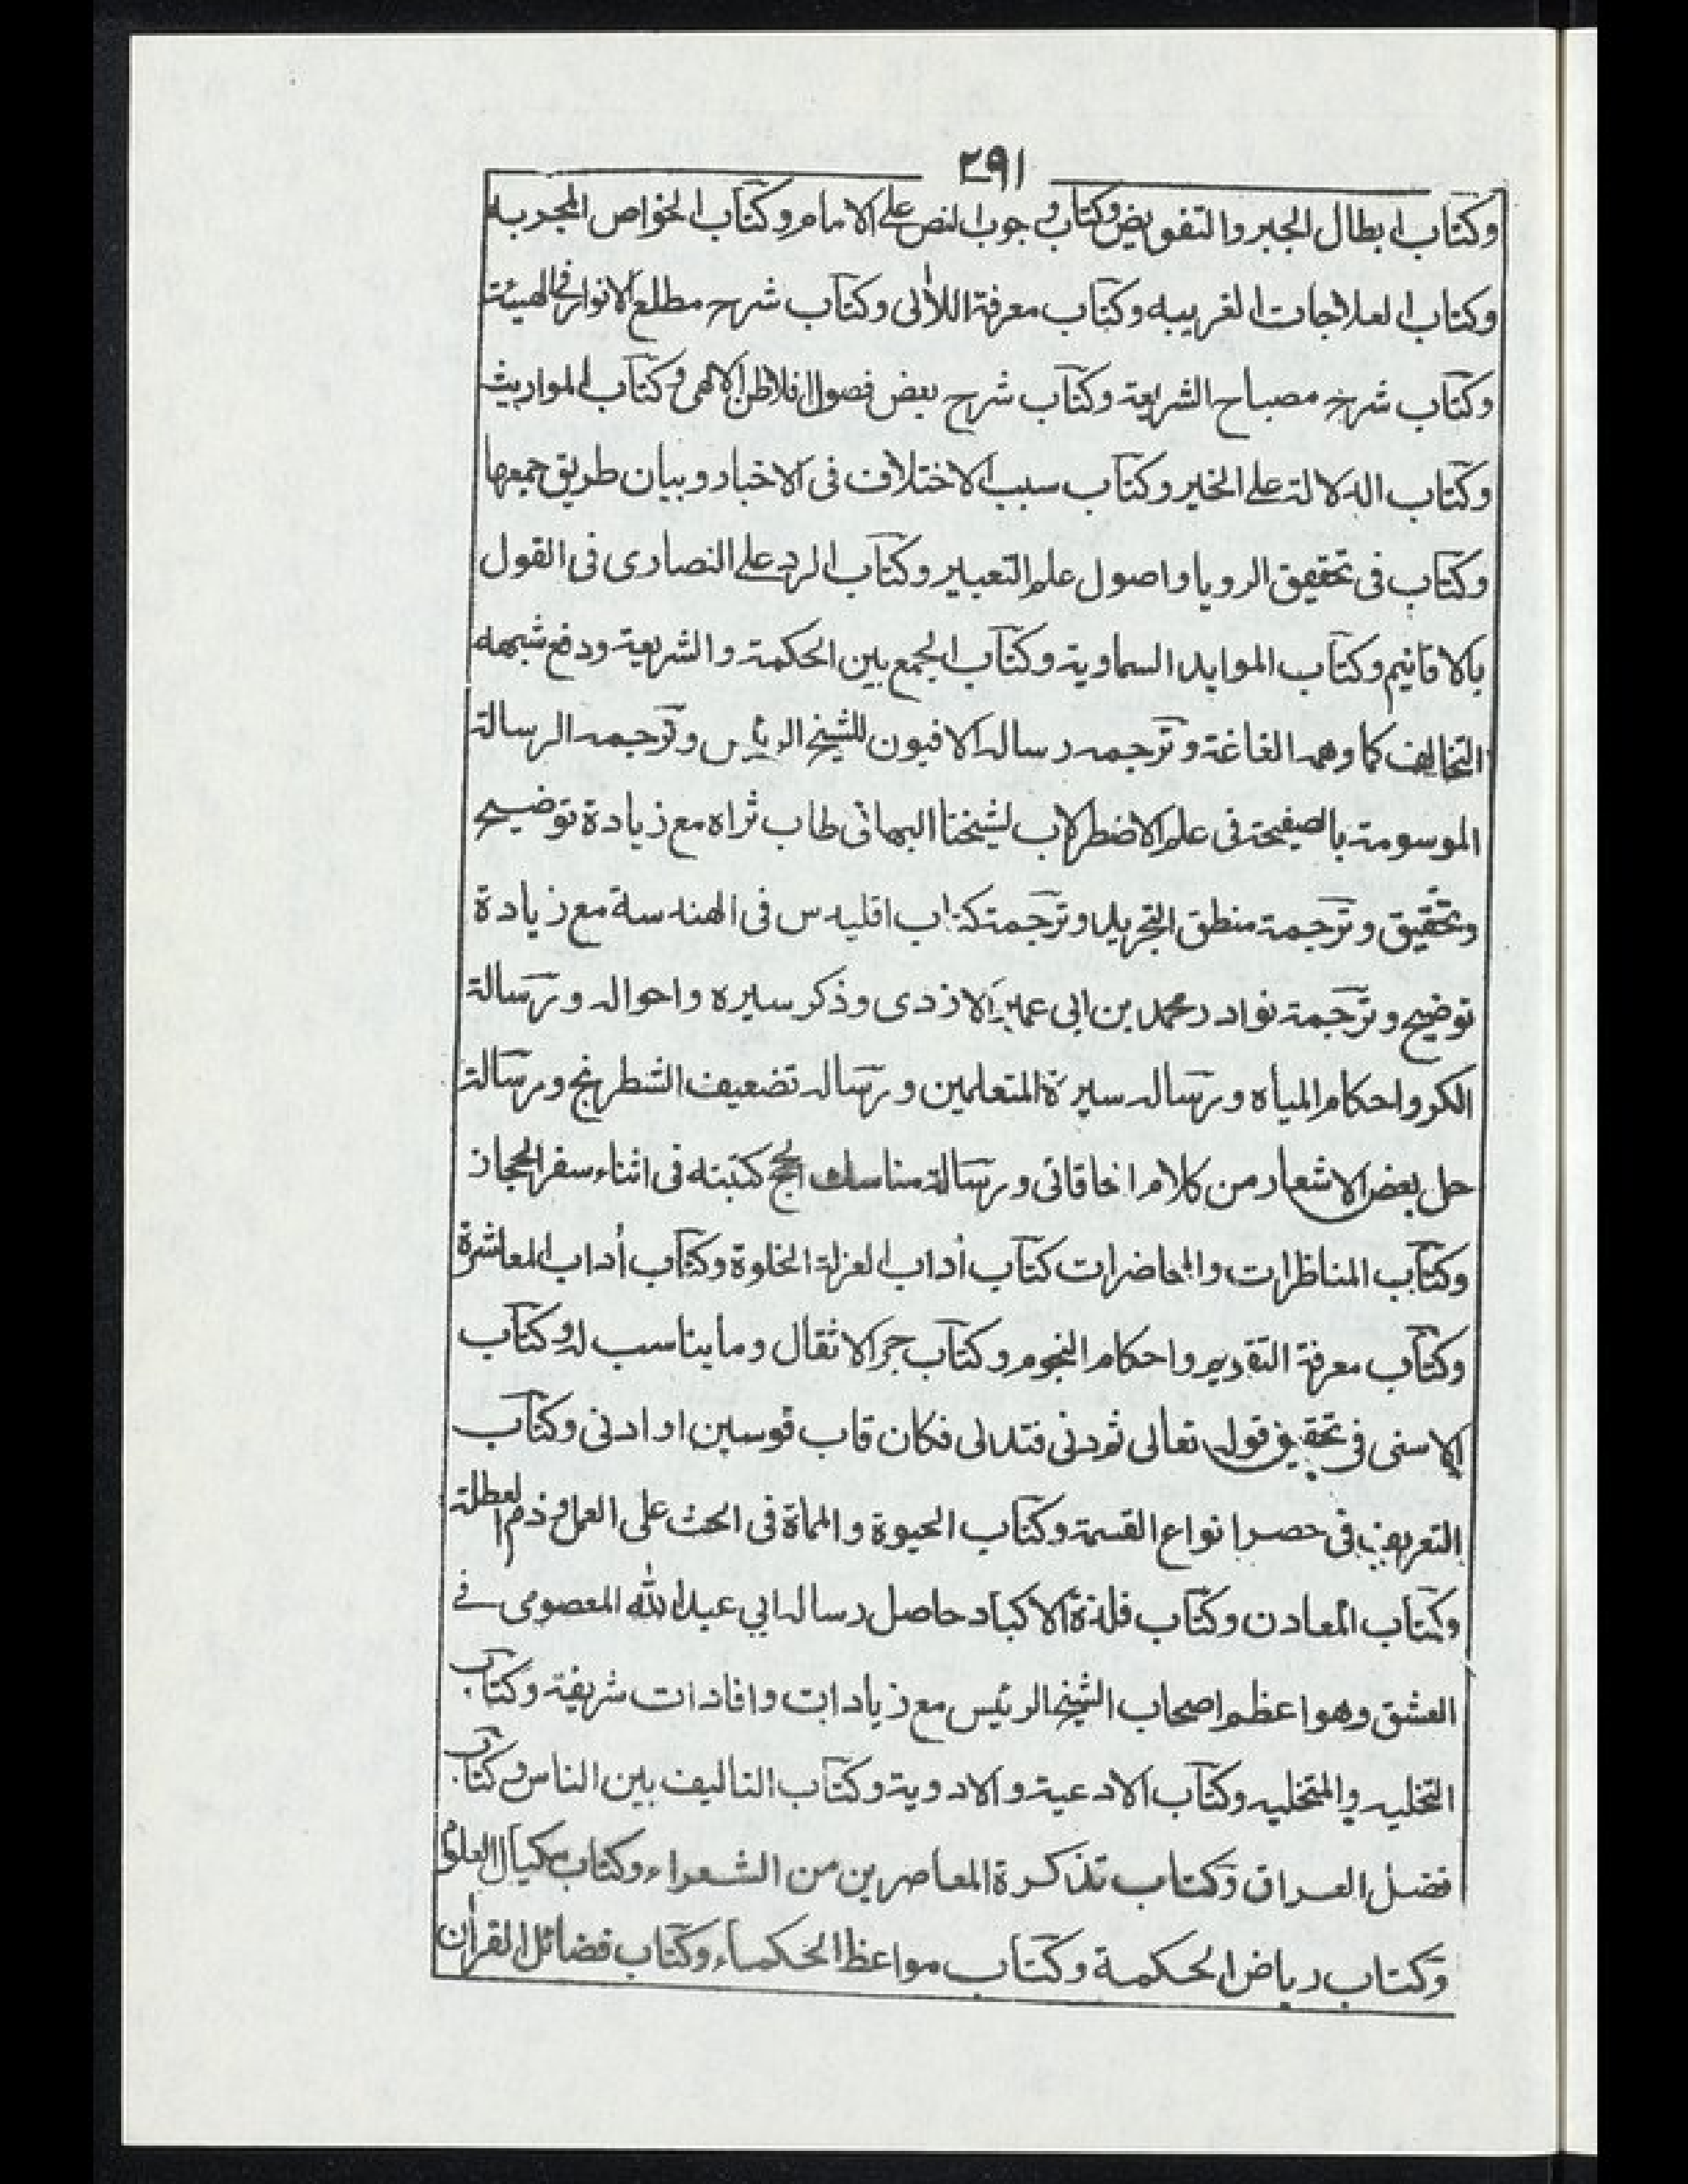 ٢٩١
وكتاب ابطال الجبر والتفويض وكتاب وجوب النص على الامام وكتاب الخواص المجربه
وكتاب العلاجات الغريبه وكتاب معرفة اللألى وكتاب شرح مطلع الانوار فى الهيئة
وكتاب شرح مصباح الشريعة وكتاب شرح بعض فصول افلاطن الالهى وكتاب المواريث
وكتاب الدلالة على الخير وكتاب سبب الاختلاف فى الاخبار وبيان طريق جمعها
وكتاب فى تحقيق الرويا واصول علم التعبير وكتاب الرد على النصارى فى القول
بالاقانيم وكتاب الموايد السماوية وكتاب الجمع بين الحكمة والشريعة ودفع شبهه
التخالف كما وهمه الغاغة وترجمه رساله الافيون للشيخ الرئيس وترجمه الرسالة
الموسومة بالصفيحة فى علم الاضطرلاب لشيخنا البهائى طاب ثراه مع زيادة توضيح
وتحقيق وترجمة منطق التجريد وترجمة كتاب اقليدس فى الهندسة مع زيادة
توضيح وترجمة نوادر محمد بن ابى عمير الازدى وذكر سيره واحواله ورسالة
الكر واحكام المياه ورساله سيرة المتعلمين ورساله تضعيف الشطرنج ورسالة
حل بعض الاشعار من كلام اخاقانى ورسالة مناسك الحج كتبته فى اثناء سفر الحجاز
وكتاب المناظرات والمحاضرات كتاب أداب العزلة الخلوة وكتاب أداب المعاشرة
وكتاب معرفة التقديم واحكام النجوم وكتاب جر الاثقال وما يناسب له وكتاب
الاسنى فى تحقيق قوله تعالى ثم دنى فتدلى فكان قاب قوسين او ادنى وكتاب
التعريف فى حصر انواع القسمة وكتاب الحيوة والمماة فى الحث على العمل وذم العطلة
وكتاب المعادن وكتاب فلذة الاكباد حاصل رساله ابي عبد الله المعصومى فے
العشق وهو اعظم اصحاب الشيخ الرئيس مع زيادات وافادات شريفة وكتاب
التخليه والمتخليه وكتاب الادعية والادوية وكتاب التاليف بين الناس وكتاب
فضل العراق وكتاب تذكرة المعاصرين من الشعراء وكتاب مكيال العلوم
وكتاب رياض الحكمة وكتاب مواعظ الحكماء وكتاب فضائل القرأن